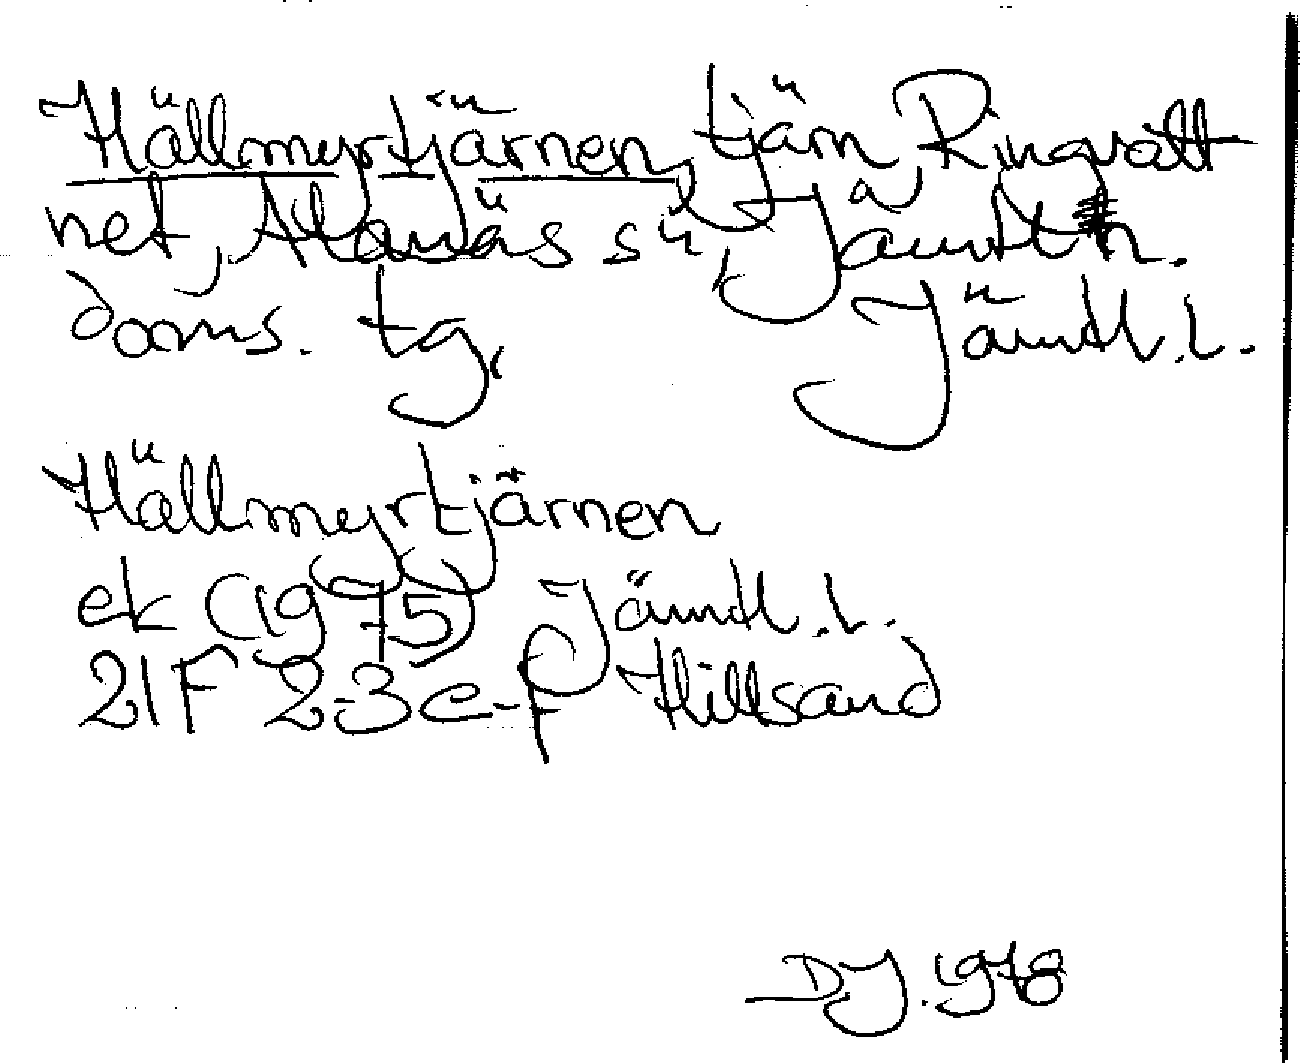 Hällmyrtjärnen, tjärn, Ringvatt
net, Alanäs sn, Jämtl. n.
doms. tg, Jämtl. l.
Hällmyrtjärnen
ek (1975) Jämtl. l.
21F 2-3e-f Hillsand
D.J. 1978